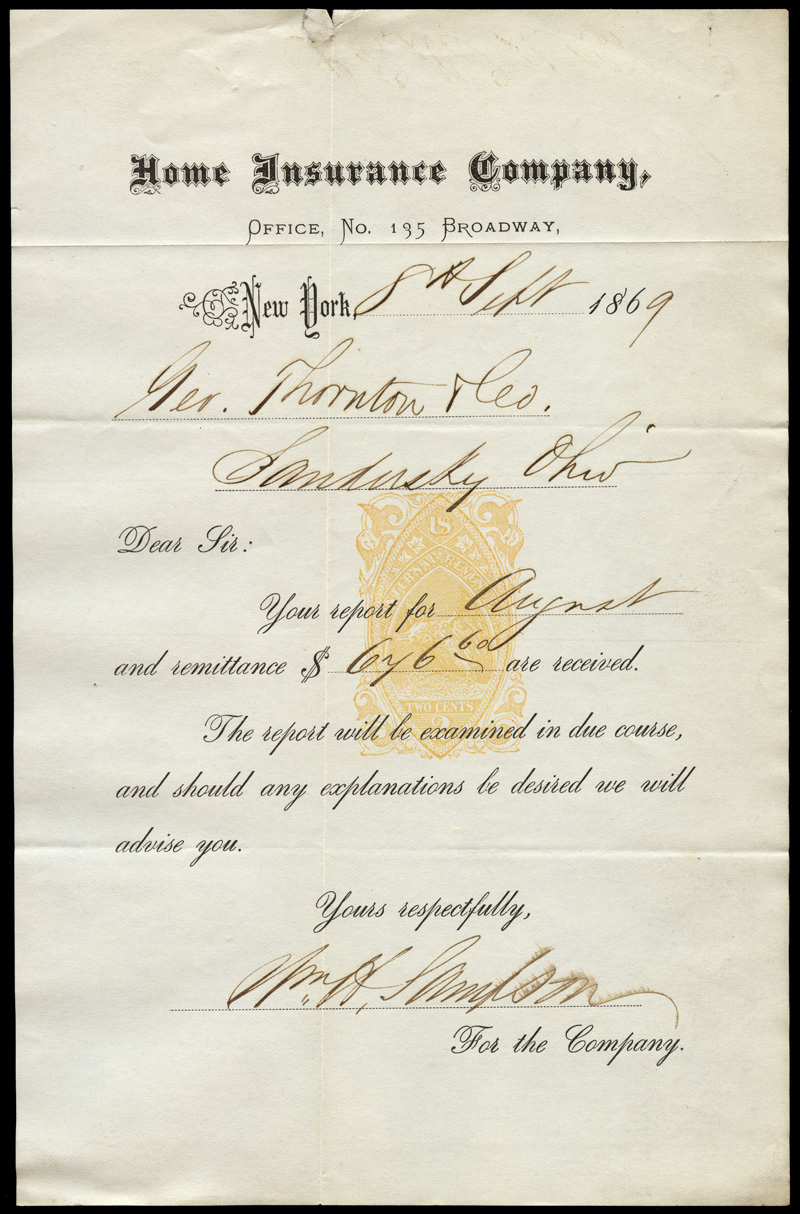 Home Insurance Company,
Office, No. 135 Broadway,
New York, 8th Sept 1869
Geo. Thornton & Co.
Sandersky Ohio
Dear Sir:
U S
INTERNAL REVENUE
Your report for August
and remittance $ 676 60 are received.
TWO CENTS
2
The report will be examined in due course,
and should any explanations be desired we will
advise you.
Yours respectfully,
Wm. H. Sampson
For the Company.